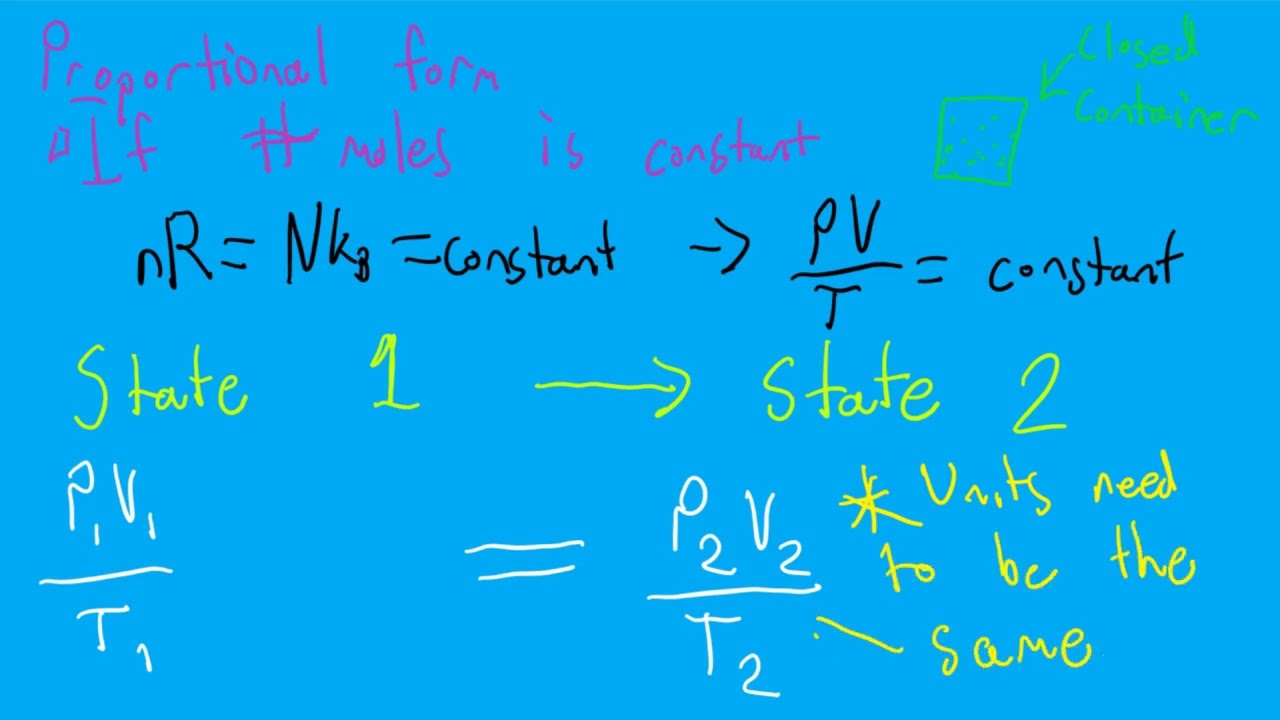 Proportional form
▯If # moles is constant
Closed
Container
nR = Nk_B = constant → PV/T = constant
State 1 → State 2
P₁V₁/T₁ = P₂V₂/T₂
* Units need
to be the
same